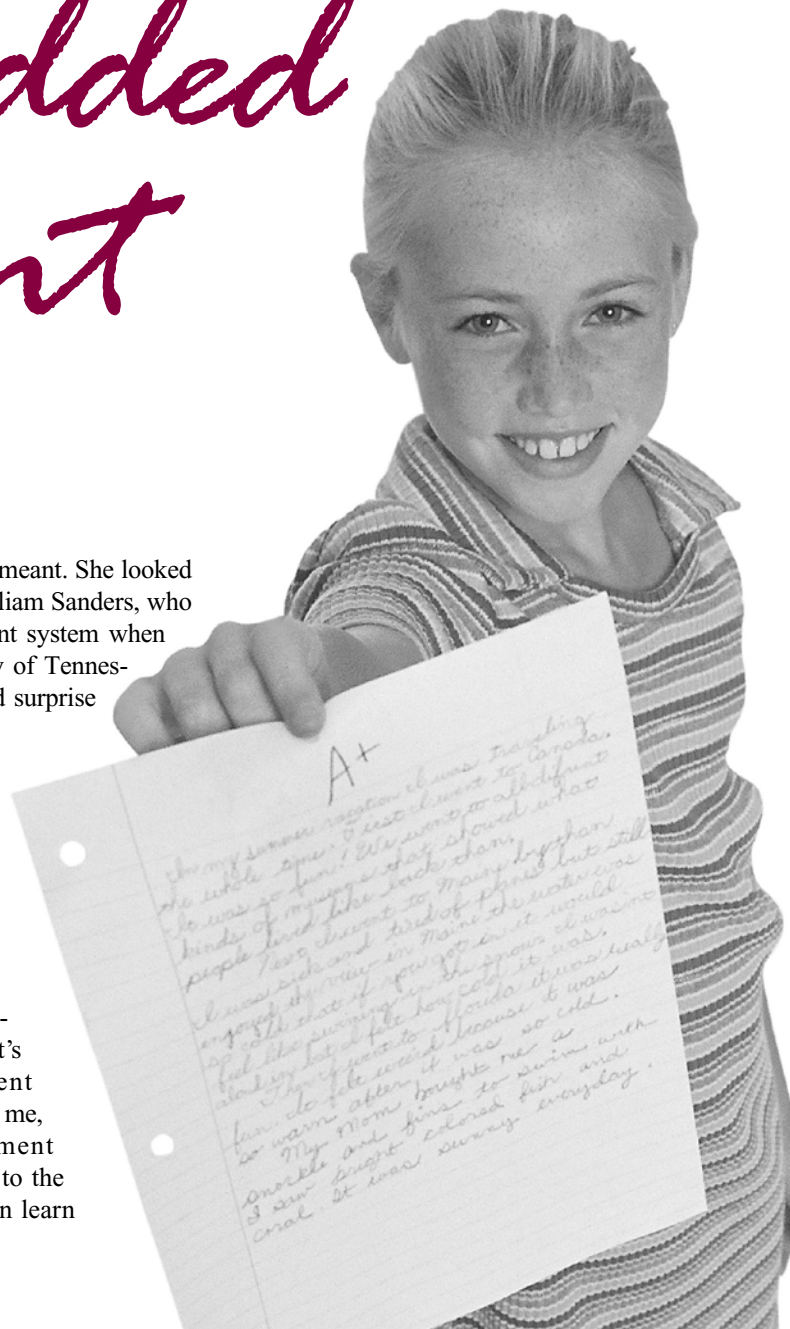 dded
nt
meant. She looked
liam Sanders, who
nt system when
y of Tennes-
d surprise
-
t's
ent
me,
ment
to the
n learn
A+
On my summer vacation I was traveling
the whole time. First I went to Canada.
It was so fun! We went to all
kinds of that showed what
people lived like back than.
Next I went to by than
I was sick and tired of but still
enjoyed the view in Maine the water was
so cold that if you got in it would
feel like in the snow. I was not
in but I felt how cold it was.
Then I went to Florida it was really
fun. It felt weird because it was
so warm after it was so cold.
My Mom bought me a
and fins to swim with
I saw bright colored fish and
coral. It was sunny everyday.